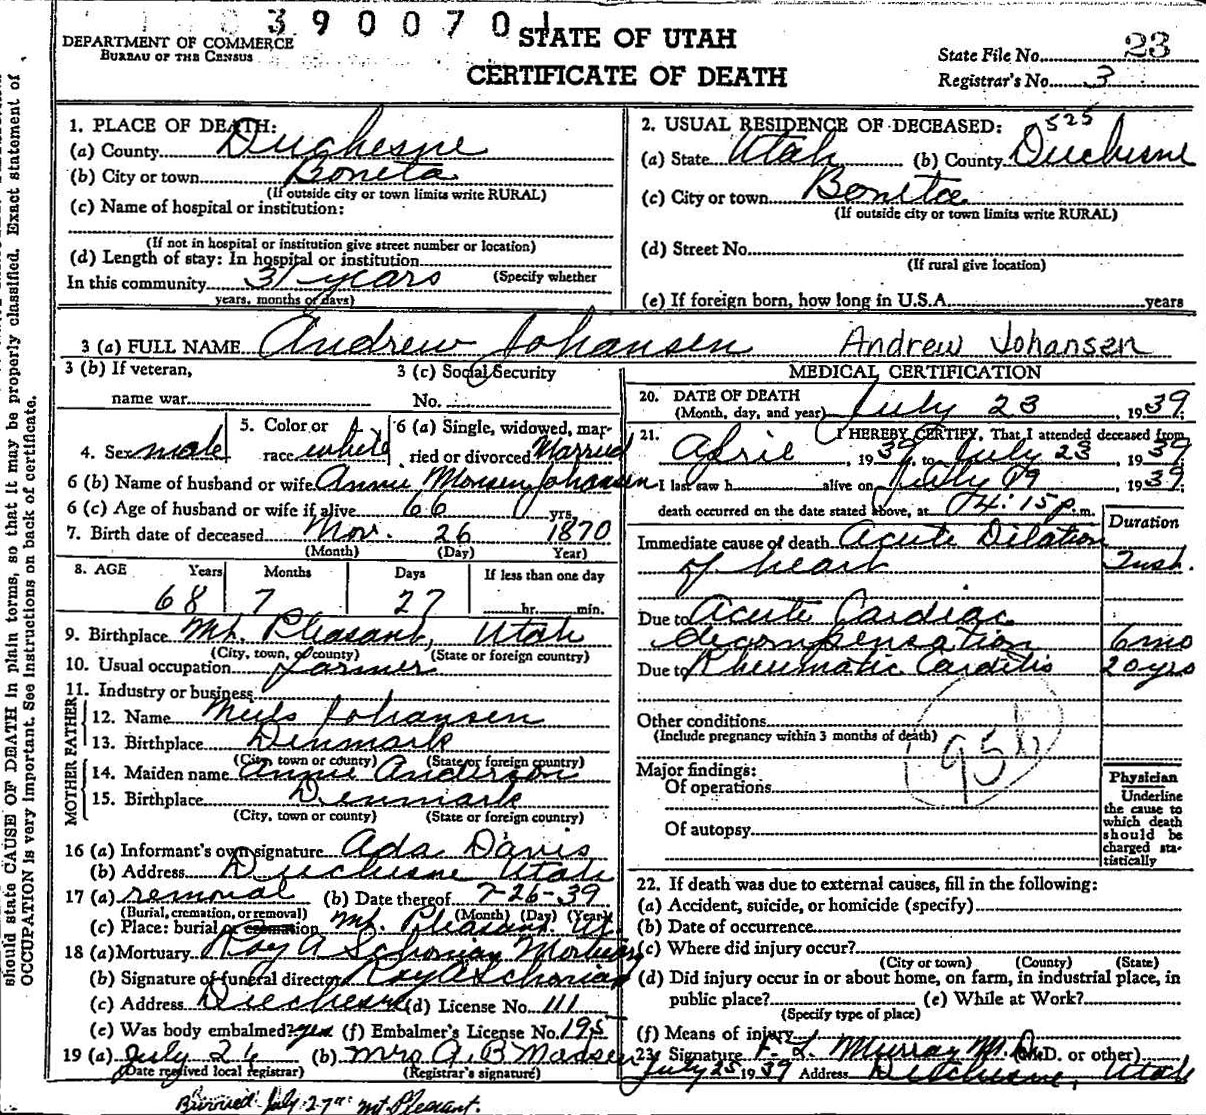 390070
DEPARTMENT OF COMMERCE
BUREAU OF THE CENSUS
STATE OF UTAH
CERTIFICATE OF DEATH
State File No. 23
Registrar's No. 3
should state CAUSE OF DEATH in plain terms, so that it may be properly classified. Exact statement of
OCCUPATION is very important. See instructions on back of certificate.
1. PLACE OF DEATH:
(a) County Duchesne
(b) City or town Boneta
(If outside city or town limits write RURAL)
(c) Name of hospital or institution:
(If not in hospital or institution give street number or location)
(d) Length of stay: In hospital or institution
(Specify whether
In this community 31 years
years, months or days)
2. USUAL RESIDENCE OF DECEASED: 525
(a) State Utah (b) County Duchesne
(c) City or town Boneta
(If outside city or town limits write RURAL)
(d) Street No.
(If rural give location)
(e) If foreign born, how long in U.S.A. years
3 (a) FULL NAME Andrew Johansen Andrew Johansen
3 (b) If veteran,
name war
3 (c) Social Security
No.
4. Sex male
5. Color or
race white
6 (a) Single, widowed, mar-
ried or divorced Married
6 (b) Name of husband or wife Annie Johansen
6 (c) Age of husband or wife if alive 66 yrs.
7. Birth date of deceased Nov. 26 1870
(Month) (Day) Year)
8. AGE Years Months Days If less than one day
68 7 27 hr. min.
9. Birthplace Mt. Pleasant, Utah
(City, town, or county) (State or foreign country)
10. Usual occupation Farmer
11. Industry or business
FATHER
12. Name Neils Johansen
13. Birthplace Denmark
(City, town or county) (State or foreign country)
MOTHER
14. Maiden name Annie Anderson
15. Birthplace Denmark
(City, town or county) (State or foreign country)
16 (a) Informant's own signature Ada Davis
(b) Address Duchesne Utah
17 (a) removal (b) Date thereof 7-26-39
(Burial, cremation, or removal) (Month) (Day) (Year)
(c) Place: burial or cremation Mt. Pleasant Ut.
18 (a) Mortuary Roy A Schonian Mortuary
(b) Signature of funeral director Roy A Schonian
(c) Address Duchesne (d) License No. 111
(e) Was body embalmed? yes (f) Embalmer's License No. 195
19 (a) July 26 (b) Mrs A. B Madsen
(Date received local registrar) (Registrar's signature)
July 27 Mt Pleasant.
MEDICAL CERTIFICATION
20. DATE OF DEATH
(Month, day, and year) July 23, 1939.
21. I HEREBY CERTIFY, That I attended deceased from
April, 1939, to July 23, 1939
I last saw h alive on July 19, 1939.
death occurred on the date stated above, at 4:15 p.m.
Duration
Immediate cause of death Acute Dilation
of heart Inst.
Due to Acute Cardiac
decompensation 6 mo
Due to Rheumatic Carditis 20 yrs
Other conditions
(Include pregnancy within 3 months of death)
95b
Major findings:
Of operations
Of autopsy
Physician
Underline
the cause to
which death
should be
charged sta-
tistically
22. If death was due to external causes, fill in the following:
(a) Accident, suicide, or homicide (specify)
(b) Date of occurrence
(c) Where did injury occur?
(City or town) (County) (State)
(d) Did injury occur in or about home, on farm, in industrial place, in
public place? (e) While at Work?
(Specify type of place)
(f) Means of injury
23. Signature Murray M.D. (M.D. or other)
July 25 1939 Address Duchesne, Utah